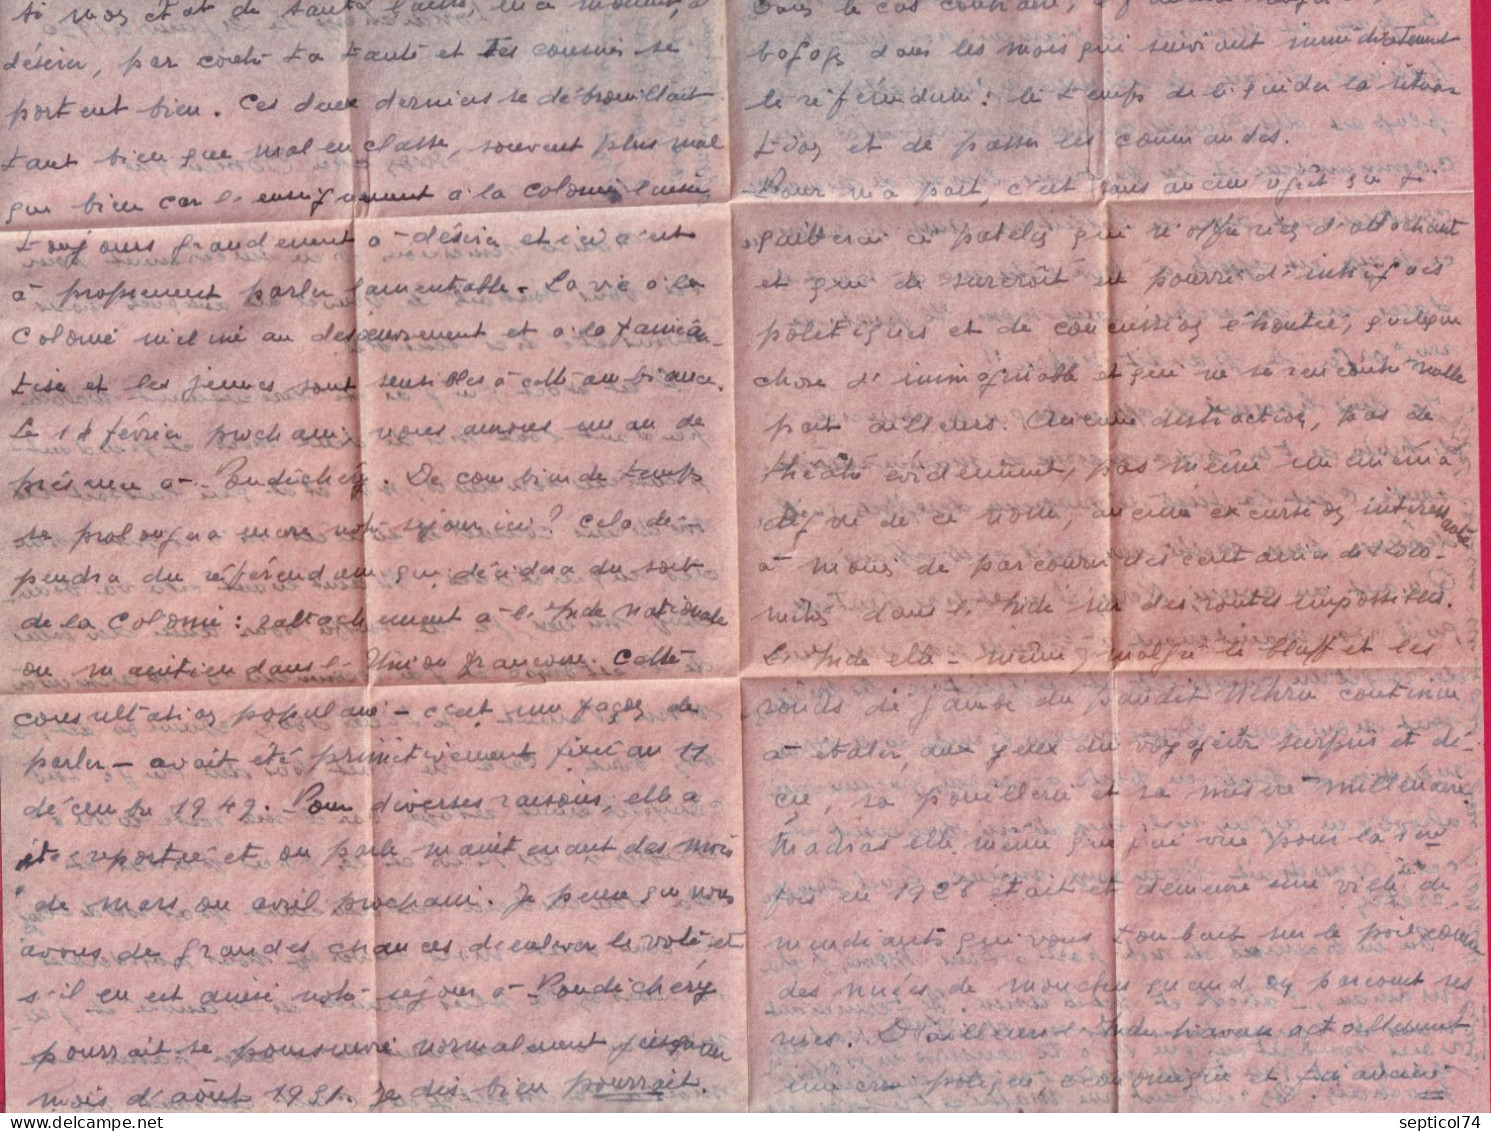 si mon état de santé laisse, en ce moment, à
désirer, par contre ta tante et tes cousins se
portent bien. Ces deux derniers se débrouillent
tant bien que mal en classe, souvent plus mal
que bien car l'enseignement à la colonie laisse
toujours grandement à désirer et ici c'est
à proprement parler lamentable. La vie à la
colonie incline au désœuvrement et à la fainéan-
tise et les jeunes sont sensibles à cette ambiance.
Le 18 février prochain nous aurons un an de
présence à Pondichéry. De combien de temps
se prolongera encore notre séjour ici? Cela dé-
pendra du référendum qui décidera du sort
de la Colonie : rattachement à l'Inde nationale
ou maintien dans l'Union française. Cette
consultation populaire - c'est une façon de
parler - avait été primitivement fixée au 11
décembre 1949. Pour diverses raisons, elle a
été reportée et on parle maintenant des mois
de mars ou avril prochain. Je pense que nous
avons de grandes chances d'enlever le vote et
s'il en est ainsi notre séjour à Pondichéry
pourrait se poursuivre normalement jusqu'au
mois d'août 1951. Je dis bien pourrait.
Dans le cas contraire,
dans les mois qui suivront immédiatement
le référendum : le temps de liquider la situa-
tion et de passer les commandes.
Pour ma part, c'est sans aucun regret que je
quitterai ce patelin qui n'offre rien d'attachant
et qui de surcroît est pourri d'intrigues
politiques et de concussion éhontée, quelque
chose d'inimaginable et qui ne se rencontre nulle
part ailleurs. Aucune distraction, pas de
théâtre évidemment, pas même un cinéma
digne de ce nom, aucune excursion intéressante
à moins de parcourir des centaines de kilo-
mètres dans l'Inde sur des routes impossibles.
L'Inde elle-même, malgré le bluff et les
ronds de jambe du pandit Nehru continue
à étaler, aux yeux du voyageur surpris et dé-
çu, sa pouillerie et sa misère millénaire.
Madras elle-même que j'ai vue pour la 1ère
fois en 1928 était et demeure une ville de
mendiants qui vous tombait sur le poil comme
des nuées de mouches quand on parcourt ses
rues. D'ailleurs l'Inde traverse actuellement
une crise politique économique et financière
septicol74